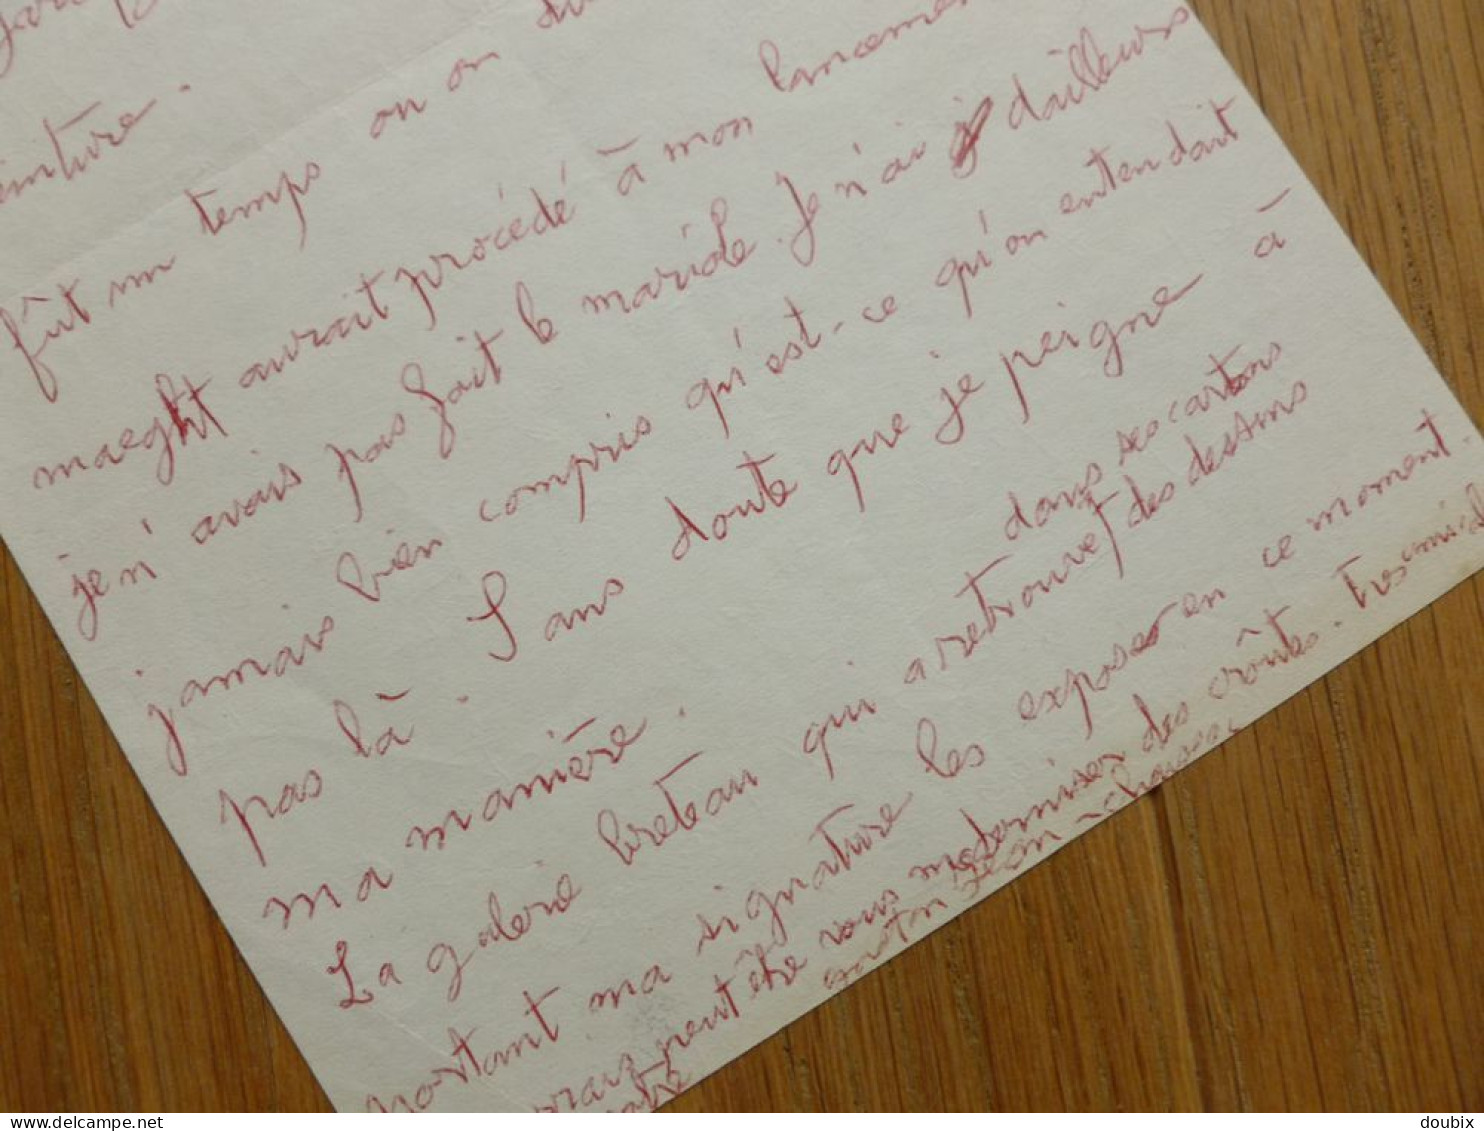 einture.
fût un temps ou on
maeght aurait procédé à mon lancemen
je n'avais pas fait le mariole. Je n'ai dailleurs
jamais bien compris qu'est-ce qu'on entendait
pas là. Sans doute que je peigne à
ma manière.
La galerie breteau qui a retrouvé dans ses cartons des dessins
portant ma signature les exposer en ce moment.
vrais peut être vous moderniser des croûtes. Tres amical
votre gaston Jean-chaissac
doubix